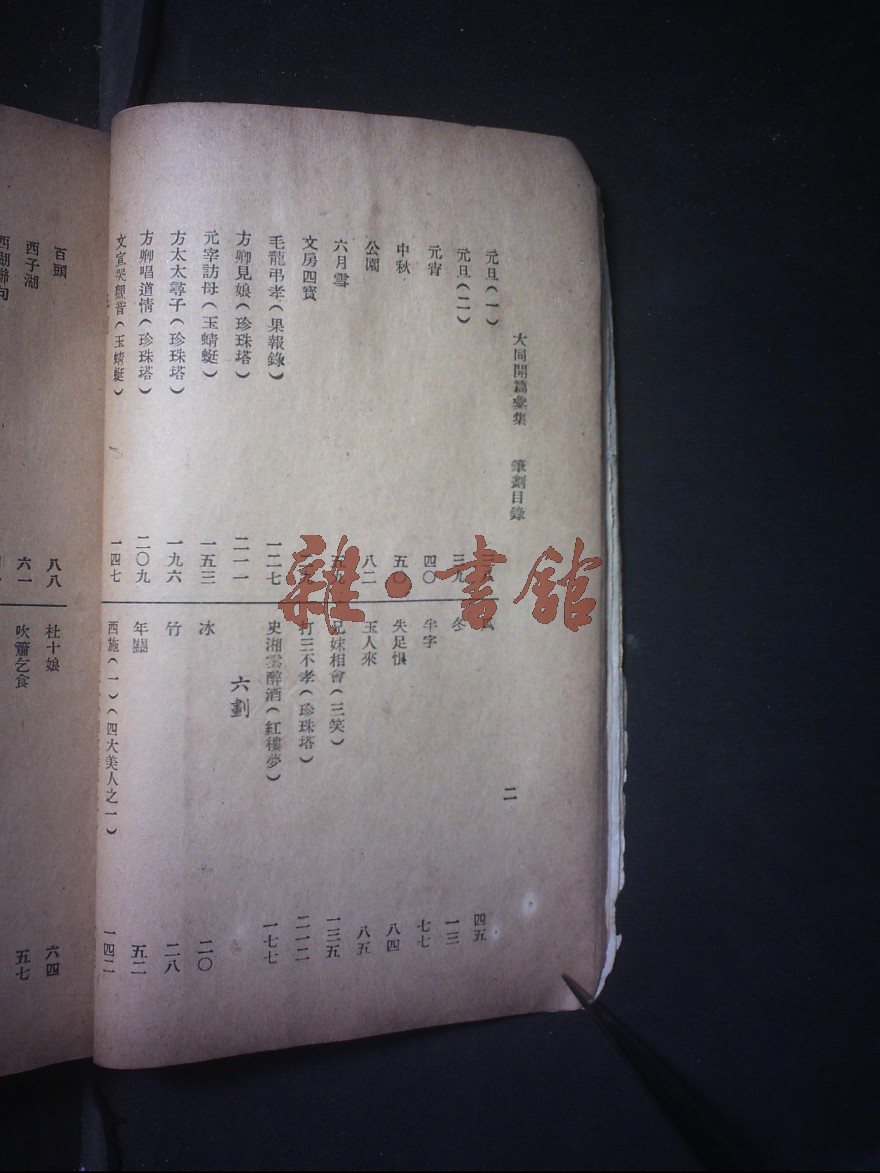 大同開篇彙集　筆劃目錄　二
元旦(一)
元旦(二)　三九
元宵　四〇
中秋　五〇
公園　八二
六月雪
文房四寶
毛龍弔孝(果報錄)　一二七
方卿見娘(珍珠塔)　二一一
元宰訪母(玉蜻蜓)　一五三
方太太尋子(珍珠塔)　一九六
方卿唱道情(珍珠塔)　二〇九
文宣哭觀音(玉蜻蜓)　一四七
四五
冬　一三
半字　七七
失足恨　八四
玉人來　八五
兄妹相會(三笑)　一三五
打三不孝(珍珠塔)　二一二
史湘雲醉酒(紅樓夢)　一七七
六劃
冰　二〇
竹　二八
年關　五二
西施(一)(四大美人之一)　一四二
百頭　八八
西子湖　六一
西湖聯句
杜十娘　六四
吹簫乞食　五七
雜·書館